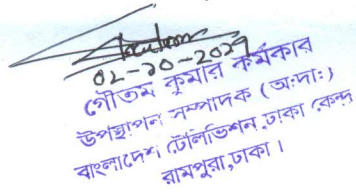 02-10-2027
গৌতম কুমার কর্মকার
উপস্থাপন সম্পাদক (অ:দা:)
বাংলাদেশ টেলিভিশন, ঢাকা কেন্দ্র
রামপুরা, ঢাকা।